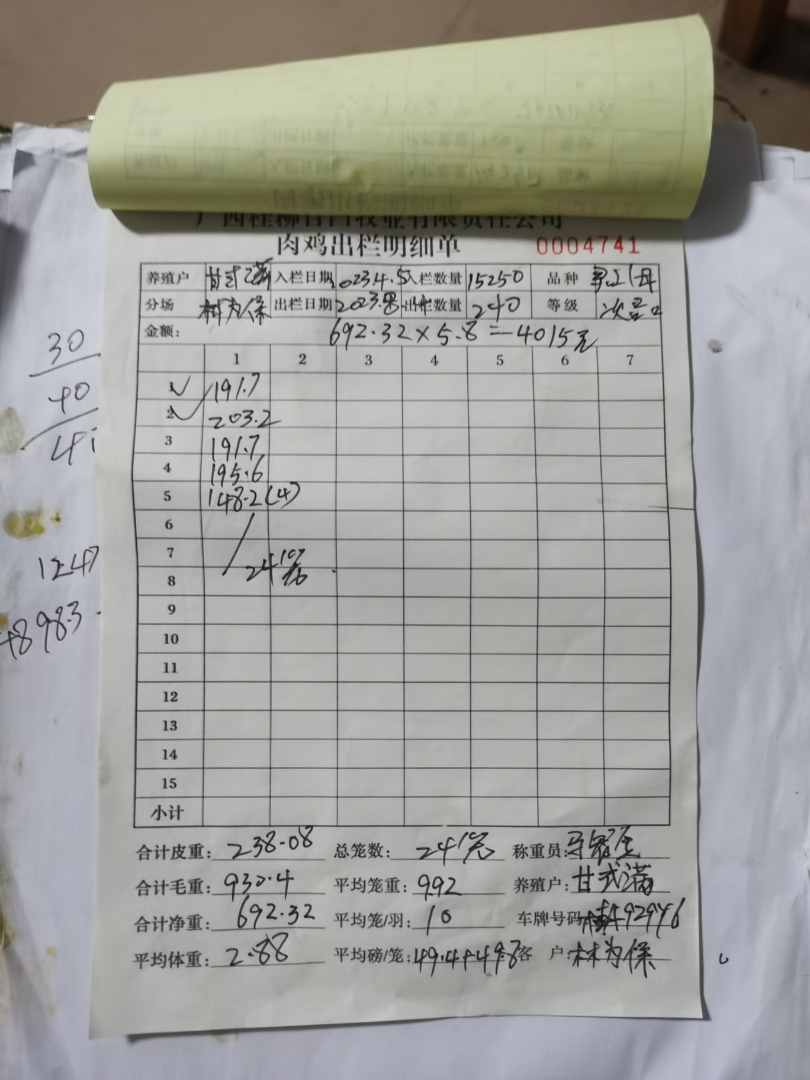 肉鸡出栏明细单 0004741
养殖户 甘式满 入栏日期 023.4.5 入栏数量 15250 品种
分场 林为保 出栏日期 2023.8. 出栏数量 240 等级 次品
金额: 692.32×5.8=4015元
1 2 3 4 5 6 7
1 191.7
2 203.2
3 191.7
4 195.6
5 148.2(4)
6
7
8 24笼
9
10
11
12
13
14
15
小计
合计皮重: 238.08 总笼数: 24笼 称重员:
合计毛重: 930.4 平均笼重: 992 养殖户: 甘式满
合计净重: 692.32 平均笼/羽: 10 车牌号码
平均体重: 2.88 平均磅/笼: 49.4+49.8 客 户: 林为保
30
40
1247
+898.3